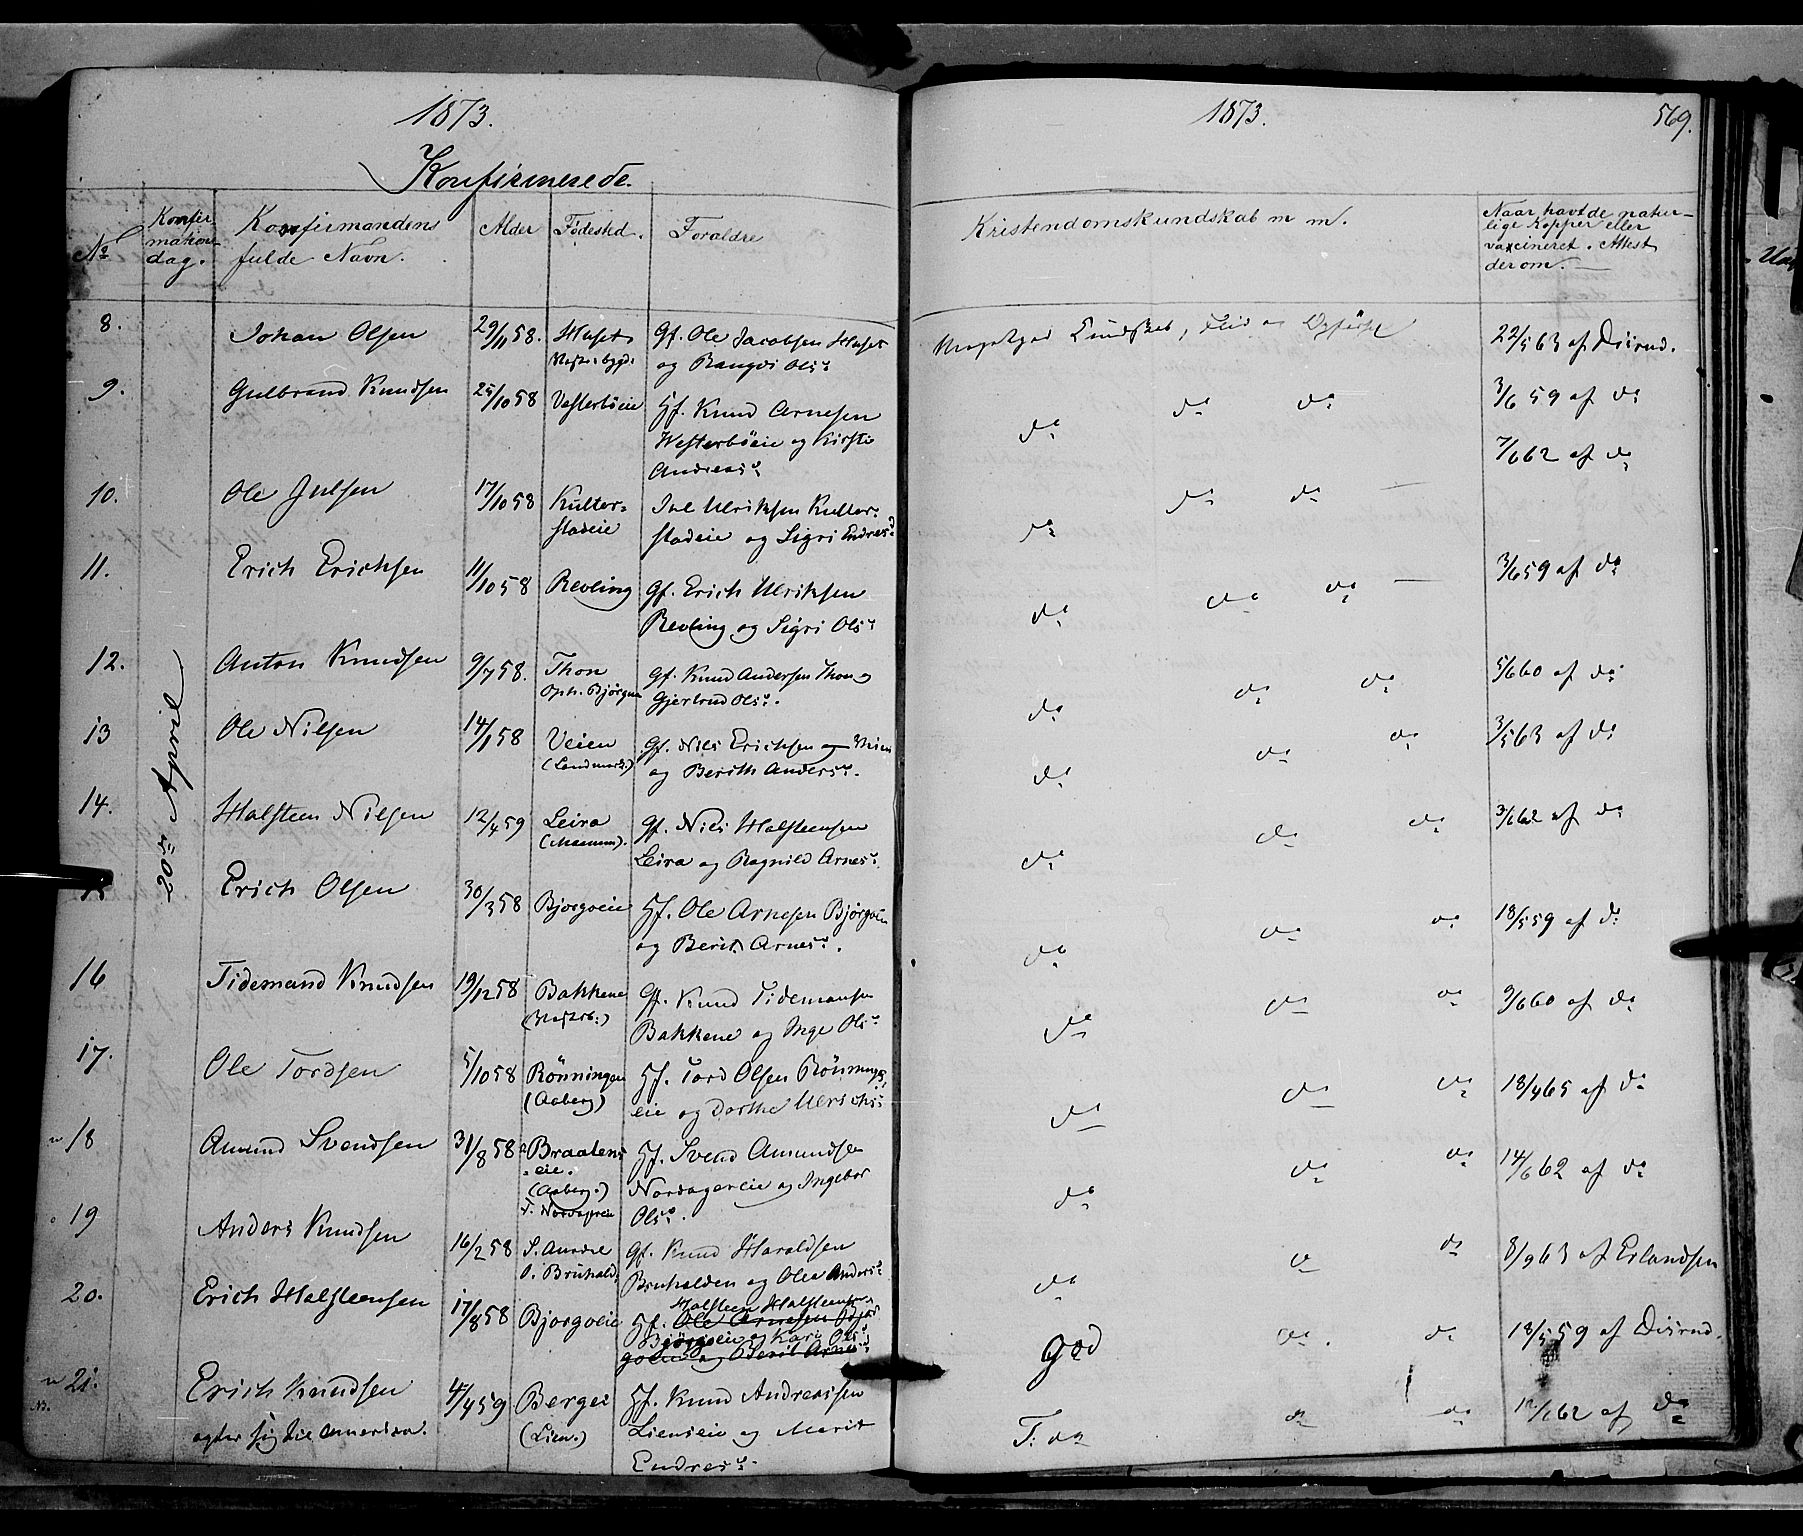 1873.
Konfirmerede.
No
Konfir
mations
dag.
Konfirmandens
fulde Navn.
Alder
Fødested.
Forældre
20de April
8.
Johan Olsen
29/11 58.
Huset
Gf. Ole Jacobsen Huset
og Rangdi Olsd.
9.
Gulbrand Knudsen
25/10 58
Vesterbøeie
Hf. Knud Arnesen
Westerbøeie og Kirsti
Andreasd.
10.
Ole Julsen
17/10 58
Kulter-
stadeie
Jul Ulriksen Kulter-
stadeie og Sigri Endresd.
11.
Erich Erichsen
11/10 58
Revling
Gf. Erich Ulriksen
Revling og Sigri Olsd.
12.
Anton Knudsen
9/7 58.
Thon
Oph. Bjørgum
Gf. Knud Andersen Thon og
Gjertrud Olsd.
13
Ole Nilsen
14/1 58
Veien
Gf. Nils Erichsen
og Berith Andersd.
14.
Halsteen Nilsen
12/4 59
Leira
Gf. Nils Halsteensen
Leira og Ragnild Arnesd.
Erich Olsen
30/3 58
Bjørgoeie
Hf. Ole Arnesen Bjørgoeie
og Berit Arnesd.
16
Tidemand Knudsen
19/12 58
Bakkene
Gf. Knud Tidemansen
Bakkene og Inge Olsd.
17.
Ole Tordsen
5/10 58
Rønningen
(Aaberg)
Hf. Tord Olsen Rønnings-
eie og Dorthe Ulrichsd.
18
Amund Svendsen
31/8 58
Braatens
eie.
(Aaberg.)
Hf. Svend Amundsen
Nordagereie og Ingebor
Olsd.
19
Anders Knudsen
16/2 58
S. Aurdal
Gf. Knud Haraldsen
Bruhalden og Olea Andersd.
20.
Erich Halsteensen
17/8 58
Bjørgoeie
Halsteen Halsteensen
Hf. Ole Arnesen Bjør
Bjørgoeie og Kari Olsd.
goeie og Berit Arnesd.
21.
NB.
Erich Knudsen
agter sig til Amerika.
4/4 59
Bergei
(Lien.)
Hf. Knud Andreassen
Lieneie og Marit
Endresd.
1873.
569.
Kristendomskundskab m m.
Naar havt de natur-
lige Kopper eller
vaxcineret. Attest
derom.
Meget god Kundskab, Flid og Opførsel
22/5 63 af Disrud.
do do do
3/6 59 af do
do do do
7/6 62 af do
do do do
3/6 59 af do
do do do
5/6 60 af do
do do do
3/5 63 af do
do do do
3/6 62 af do
do do do
18/5 59 af do
do do do
9/6 60 af do
do do do
18/4 65 af do
do do do
14/6 62 af do
do do do
8/9 63 af Erlandsen
god do do
18/5 59 af Disrud.
T. do do do
12/6 62 af do